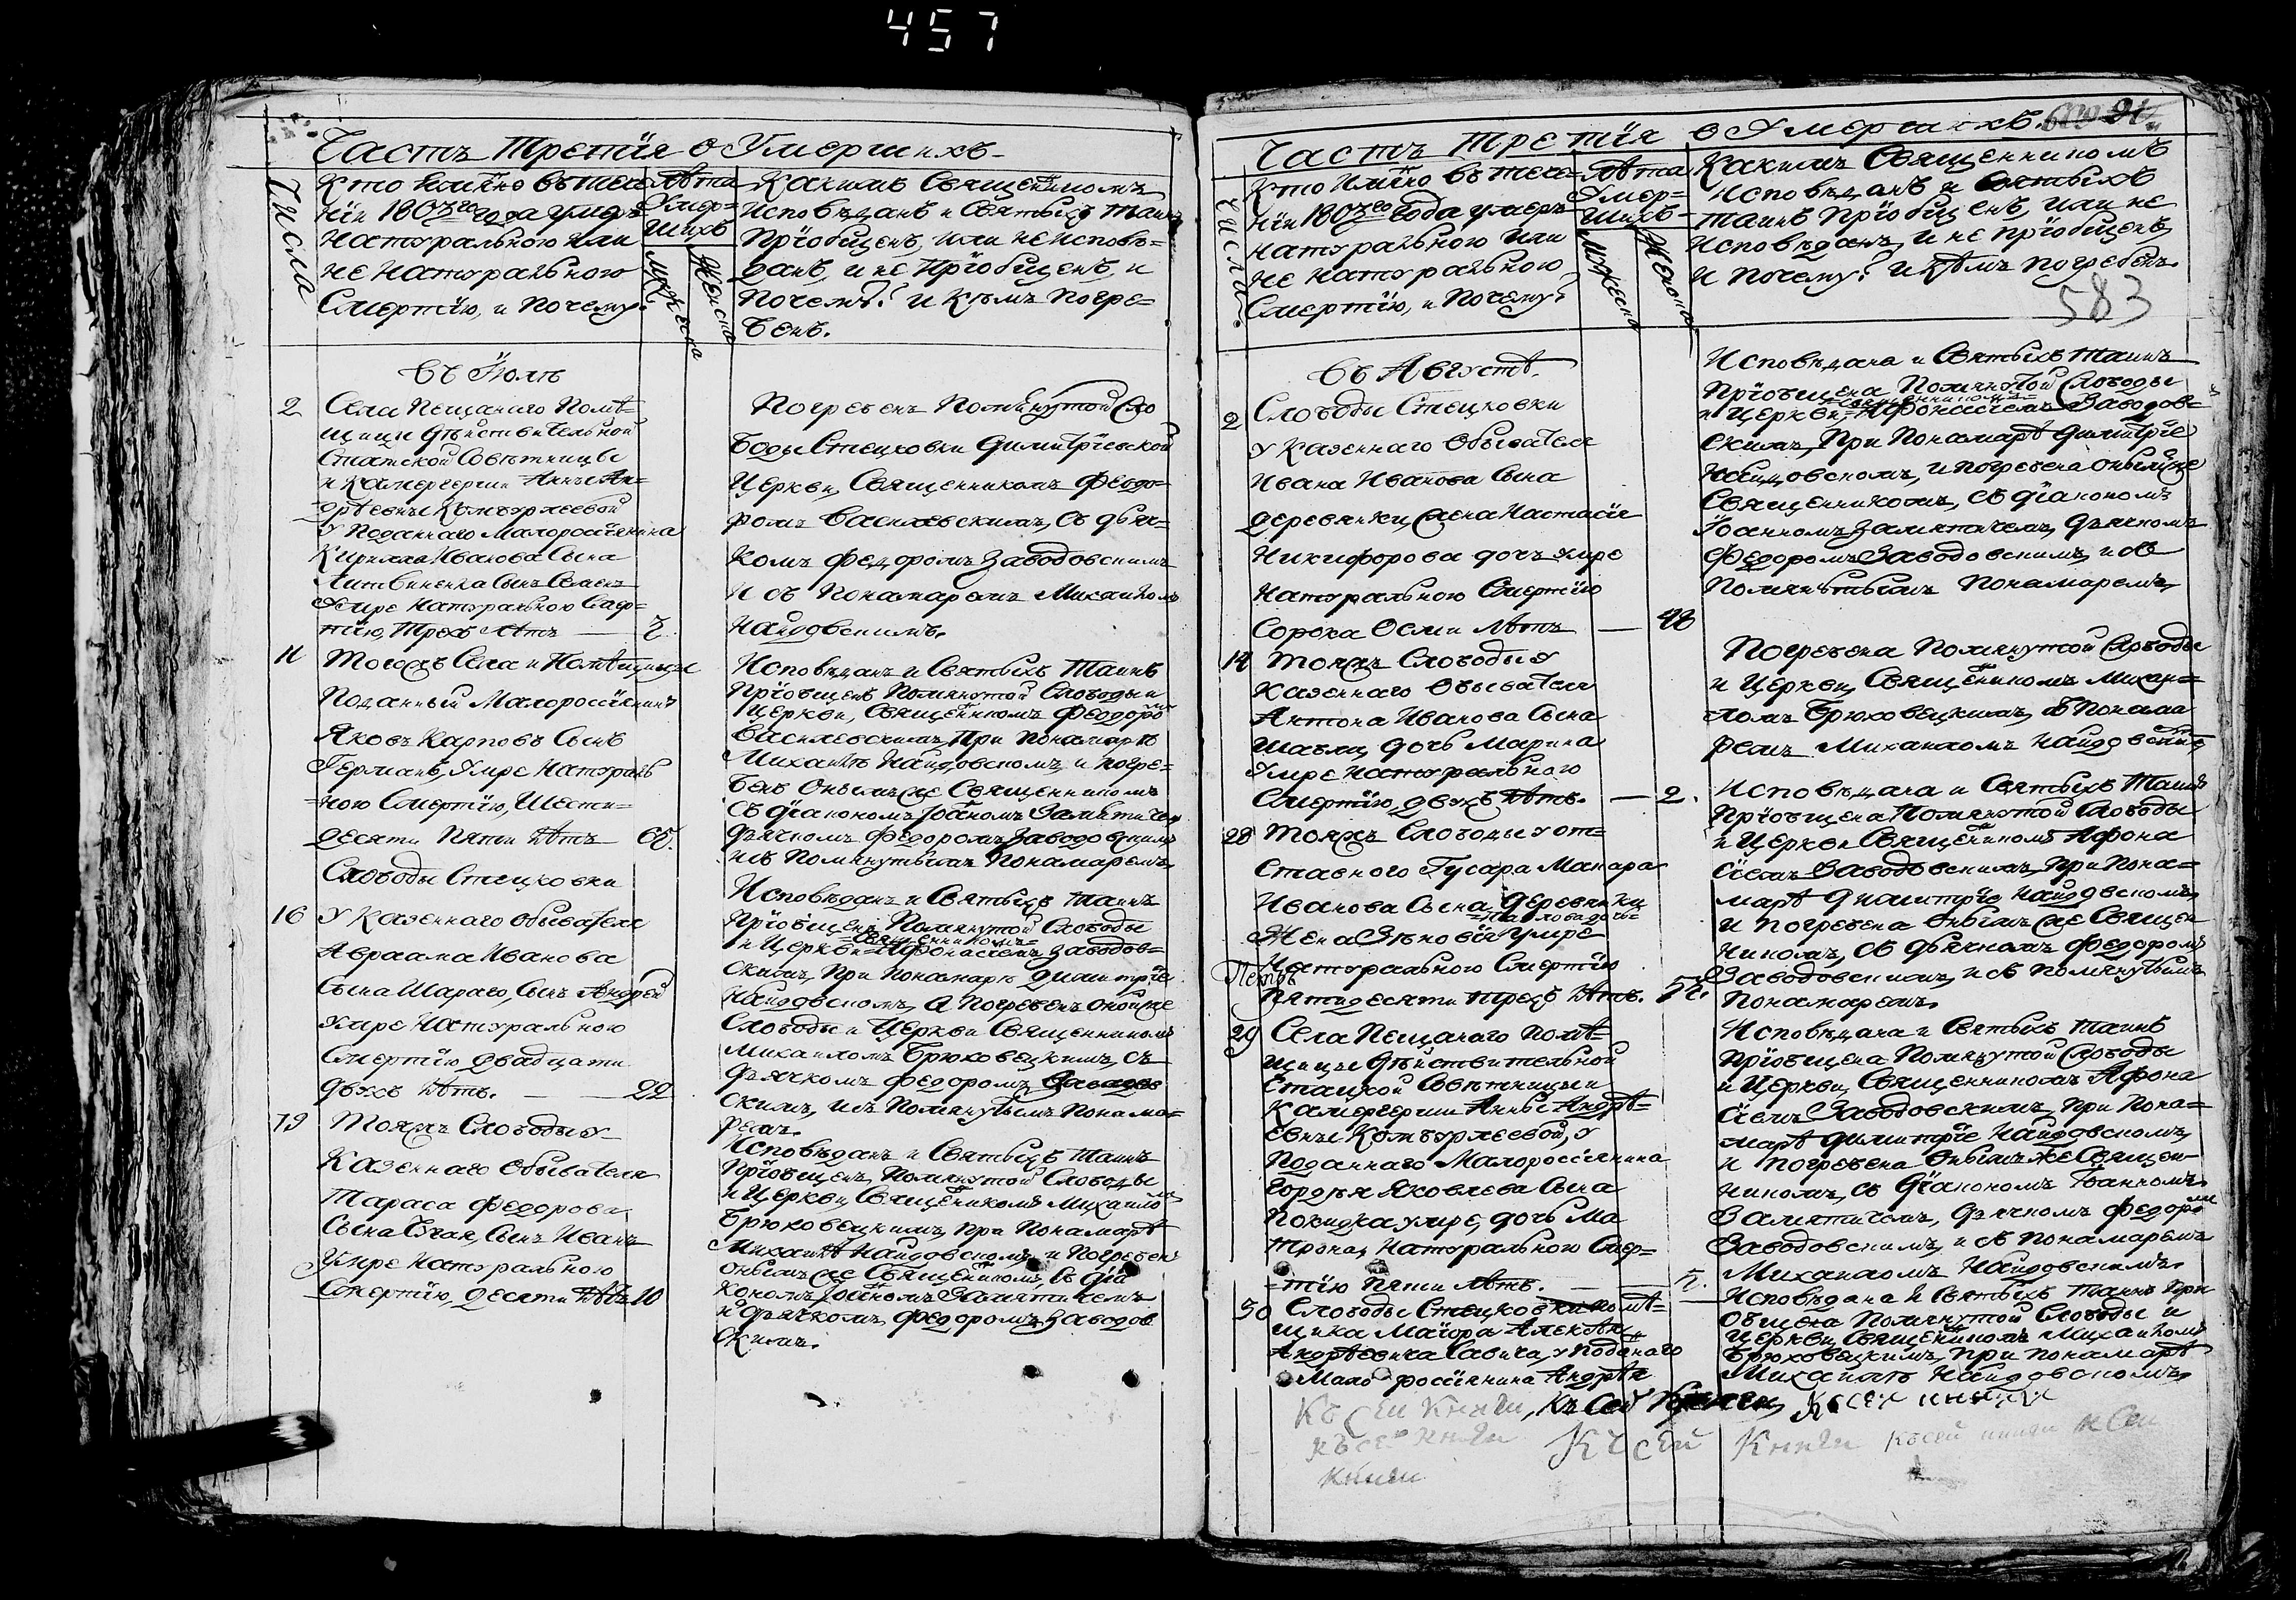 457
Часть Третїя о Умершихъ
Числа
Кто имяно въ тече-
нїи 1803го года умеръ
Натуральною или
не Натуральною
Смертїю, и почему.
Лѣта
Умер=
шихъ
Мужеска
Женска
Какимъ Священникомъ
Исповѣданъ и Святыхъ Таинъ
Прїобщенъ, или не исповѣ=
данъ, и не Прїобщенъ, и
Почему? и Кѣмъ погре=
бенъ.
въ Іюлѣ
2
Села Пещанаго Помѣ=
щицы дѣйствительной
Статской Совѣтницы
и Камергерши Анны Ан=
дрѣевны Комбурлеевой
у Поданнаго Малороссїянина
Кирилла Иванова Сына
Литвиненка Сынъ Семенъ
Умре Натуральною Смер=
тїю, Трехъ Лѣтъ — 3.
Погребенъ Помянутой Сло
боды Стецковки Димитрїевской
Церкви, Священникомъ Феодо=
ромъ Василевскимъ, Съ дьяч=
комъ Федоромъ Заводовскимъ
И съ Понамаремъ Михаиломъ
Найдовскимъ.
11
Тогожъ Села и Помѣщицы
Поданный Малороссїянинъ
Яковъ Карповъ Сынъ
Германъ, Умре Натураль
=ною Смертїю, Шести=
десяти Пяти Лѣтъ 65.
Исповѣданъ и Святыхъ Таинъ
Прїобщенъ Помянутой Слободы и
Церкви, Священникомъ Феодоро
Василевскимъ, При Понамарѣ
Михаилѣ Найдовскомъ, и погре=
бенъ Онымъ же Священникомъ
Съ дїакономъ Іоанномъ Замятичемъ
дьячкомъ Федоромъ Заводовскимъ
и съ Помянутымъ Понамаремъ.
16
Слободы Стецковки
У Казеннаго Обывателя
Авраама Иванова
Сына Шараго, Сынъ Андрей
Умре Натуральною
Смертїю двадцати
двухъ Лѣтъ. — 22
Исповѣданъ и Святыхъ Таинъ
Прїобщенъ Помянутой Слободы
=Священникомъ=
и Церкви Афонасїемъ Заводов=
скимъ, при Понамарѣ Димитрїе
Найдовскомъ, а Погребенъ оной же
Слободы и Церкви Священникомъ
Михаиломъ Брюховецкимъ, съ
дьячкомъ Федоромъ Заводов
скимъ, и съ Помянутымъ Понама=
ремъ.
19
Тояжъ Слободы у
Казеннаго Обывателя
Тараса Федорова
Сына Сынъ Иванъ
Умре Натуральною
Смертїю, десяти Лѣтъ 10
Исповѣданъ и Святыхъ Таинъ
Прїобщенъ Помянутой Слободы
и Церкви Священникомъ Михаило
Брюховецкимъ, при Понамарѣ
Михаилѣ Найдовскомъ, и Погребенъ
Онымъ же Священникомъ, съ дїа
кономъ Іоаномъ Замятичемъ
и дьячкомъ Федоромъ Заводов
скимъ.
Часть Третїя о Умершихъ.
91
583
Числа.
Кто Имяно въ тече=
нїи 1803го Года умеръ
натуральною или
не натуральною
Смертїю, и Почему?
Лѣта
Умер=
шихъ
Мужеска
Женска
Какимъ Священникомъ
Исповѣданъ и Святыхъ
таинъ Прїобщенъ, или не
исповѣданъ, и не прїобщенъ,
и почему? и Кѣмъ погребенъ.
Въ Августѣ.
2
Слободы Стецковки
У Казеннаго Обывателя
Ивана Иванова Сына
деревянки, жена Настасїя
Никифорова дочь умре
Натуральною Смертїю
Сорока Осми Лѣтъ — 48
Исповѣдана и Святыхъ таинъ
Прїобщена Помянутой Слободы
=священникомъ=
и Церкви, Афонасїемъ Заводов=
скимъ, При Понамарѣ Димитрїе
Найдовскомъ, и погребена онымъ же
Священникомъ, Съ дїакономъ
Іоанномъ Замятичемъ, дьячкомъ
Федоромъ Заводовскимъ, и съ
Помянутымъ Понамаремъ,
14
Тояжъ Слободы у
Казеннаго Обывателя
Антона Иванова Сына
Шаблы, дочь Марина
Умре натуральною
Смертїю, двухъ Лѣтъ. — 2.
Погребена Помянутой Слободы
и Церкви, Священникомъ Михаи=
ломъ Брюховецкимъ, съ Понама
ремъ Михаиломъ Найдовским
28
Тояжъ Слободы у от=
ставного Гусара Макара
Иванова Сына, деревянки
=Павлова дочь=
Жена Зѣновїя умре
Натуральною Смертїю
Пятидесяти трехъ Лѣтъ. 53.
Петръ
Исповѣдана и Святыхъ Таинъ
Прїобщена Помянутой Слободы
и Церкви Священникомъ Афона
сїемъ Заводовскимъ, при Пона=
марѣ Димитрїю Найдовскомъ,
и погребена Онымъ же Священ
никомъ, Съ дьячкомъ Федоромъ
Заводовскимъ, и съ помянутымъ
Понамаремъ.
29
Села Пещанаго помѣ=
щицы дѣйствительной
Стацкой Совѣтницы и
Камергерши Анны Андрѣ=
евны Комбурлеевой, у
Поданнаго Малороссїянина
Гордѣя Яковлева Сына
Покидка умре, дочь Ма
трона, Натуральною Смер=
=тїю пяти Лѣтъ. — 5.
Исповѣдана и Святыхъ таинъ
прїобщена Помянутой Слободы
и Церкви, Священникомъ Афона
сїемъ Заводовскимъ, при Пона=
марѣ Димитрїе Найдовскомъ,
и погребена Онымъ же Священ
никомъ, съ дїакономъ Іоанномъ
Замятичемъ, дьячкомъ Федоро
Заводовскимъ, и съ Понамаремъ
Михаиломъ Найдовскимъ.
30
Слободы Стецковки помѣ=
щика Маїора Алекѣя
Андрѣевича Савича, у Поданаго
Мало россїянина Андрѣя
Исповѣдана и Святыхъ Таинъ при
общена Помянутой Слободы и
Церкви, Священикомъ Михаиломъ
Брюховецкимъ, при понамарѣ
Михаилѣ Найдовскомъ,
Къ сеи Книги, Къ Сей Книги,
къ сеи книги Къ сей Книги къ сей книги к Сеи
Книги